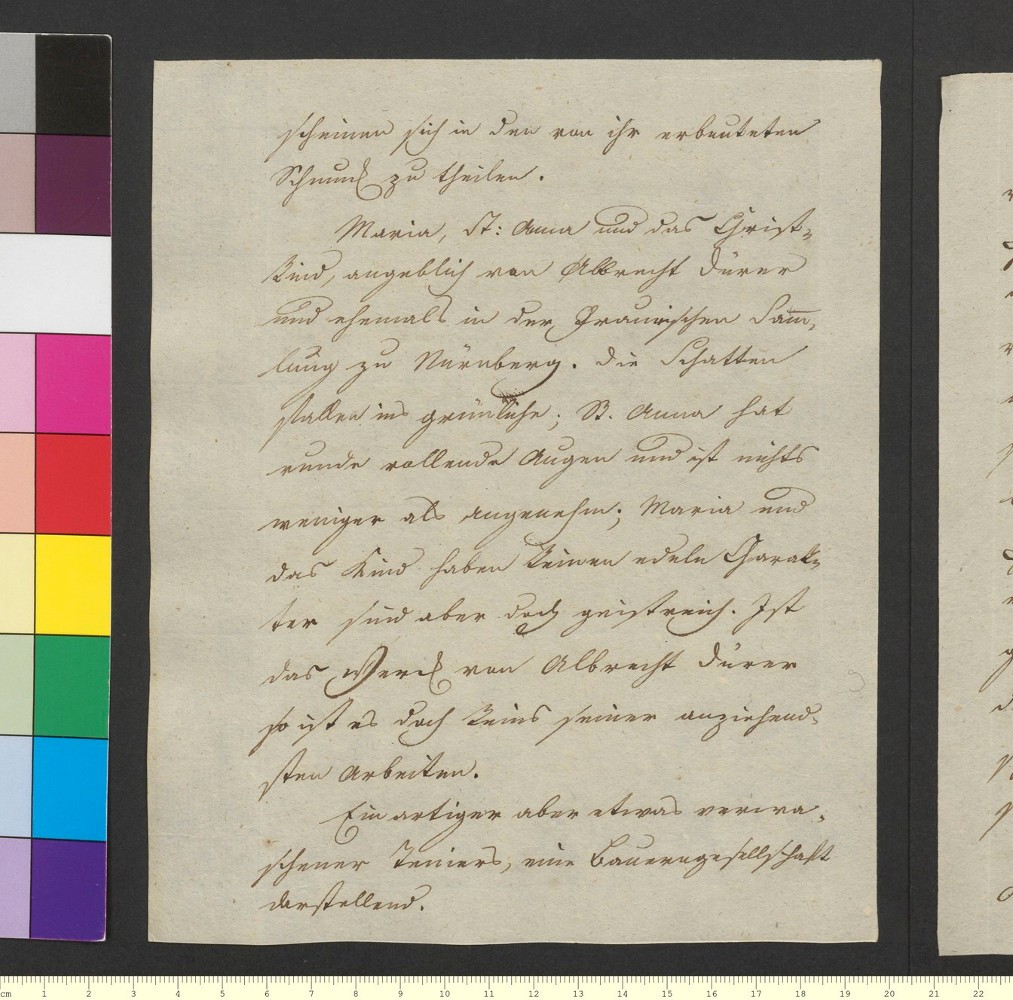 scheinen sich in den von ihr erbeuteten
Schmuck zu theilen.
Maria, St: Anna und das Christ-
kind, angeblich von Albrecht Dürer
und ehemals in der Praunischen Samm-
lung zu Nürnberg. Die Schatten
fallen ins grünliche; St. Anna hat
runde rollende Augen und ist nichts
weniger als angenehm; Maria und
das Kind haben keinen edeln Charak-
ter sind aber doch geistreich. Ist
das Werck von Albrecht Dürer
so ist es doch keins seiner anziehend-
sten Arbeiten.
Ein artiger aber etwas verwa-
schener Teniers, eine Bauerngesellschaft
darstellend.